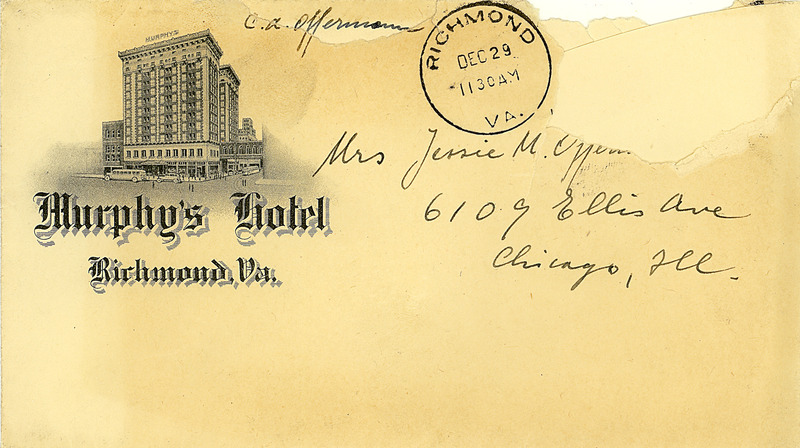 MURPHY'S
C. A. Offermann
RICHMOND
DEC 29
1130 AM
VA.
Murphy's Hotel
Richmond, Va.
Mrs Jessie M.
6109 Ellis Ave
Chicago, Ill.